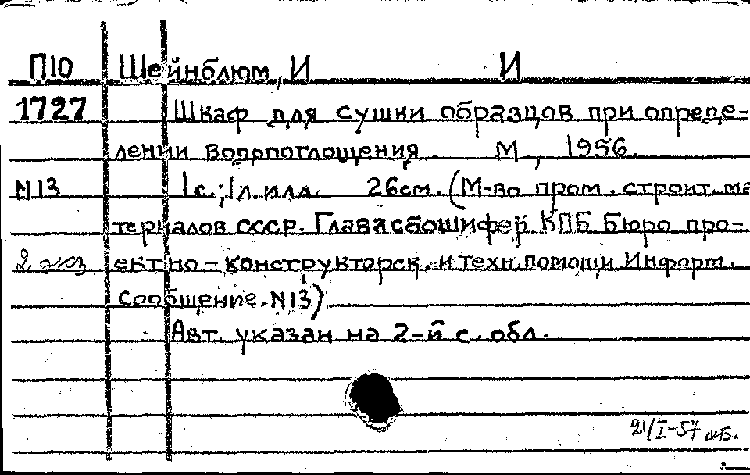 П10 Шейнблюм, И И
1727 Шкаф для сушки образцов при опреде-
лении водопоглощения. М, 1956.
N13 1с.; 1л.илл. 26см. (М-во пром. строит. ма
териалов СССР. Главасбошифер КПБ Бюро про-
2 экз ектно-конструкторск. и техн. помощи Информ.
Сообщение. N13)
Авт. указан на 2-й с. обл.
21/I-57